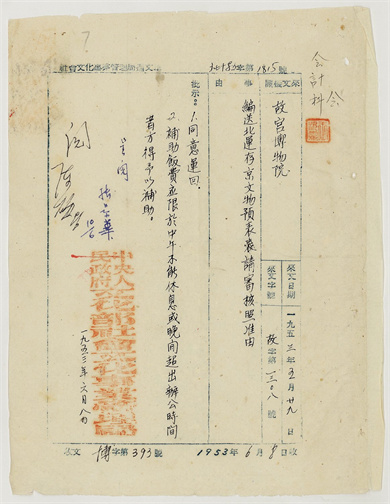 文化部社會文化事業管理局
文物字第1815號
來文機關
故宮博物院
來文日期
一九五三年五月廿九日
來文字號
故字第一三〇八號
事由
編送北運存京文物預表裝請審核照准由
批示：
1.同意運回。
2.補助飯費並限於中午不能休息或晚間超出辦公時間
者方得予以補助。
閱
10/6
中央人民政府文化部社會文化事業管理局
一九五三年六月八日
1953年6月8日收
博字第393號
會計科 會